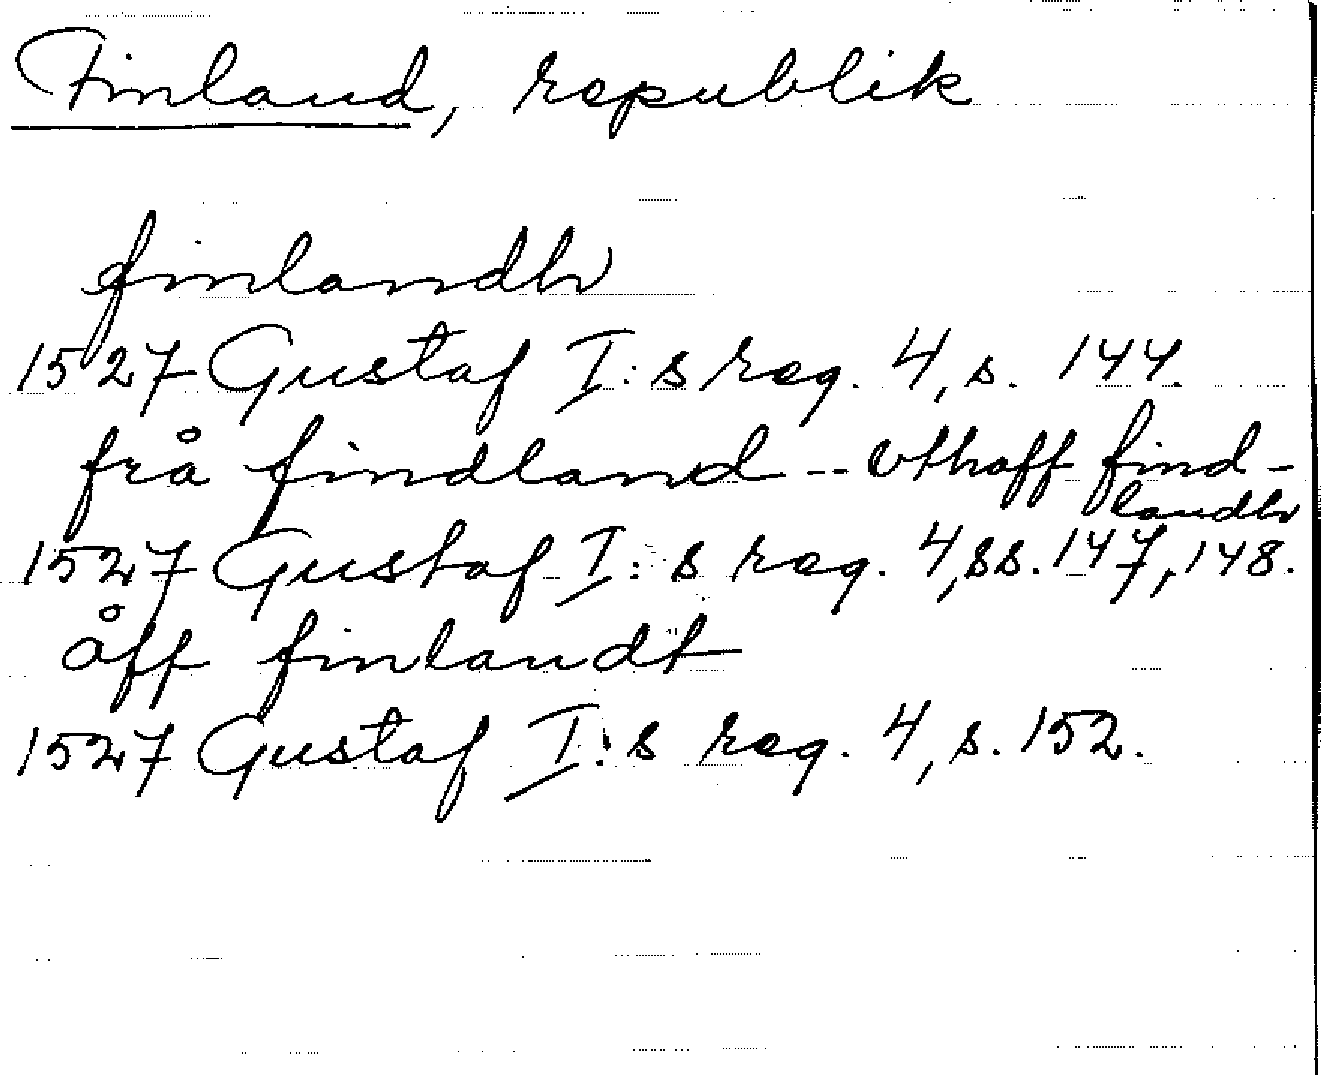 Finland, republik
finlandh
1527 Gustaf I:s reg. 4, s. 144.
frå findland -- vthaff find-
landh
1527 Gustaf I:s reg. 4, ss. 147, 148.
åff finlandt
1527 Gustaf I:s reg. 4, s. 152.